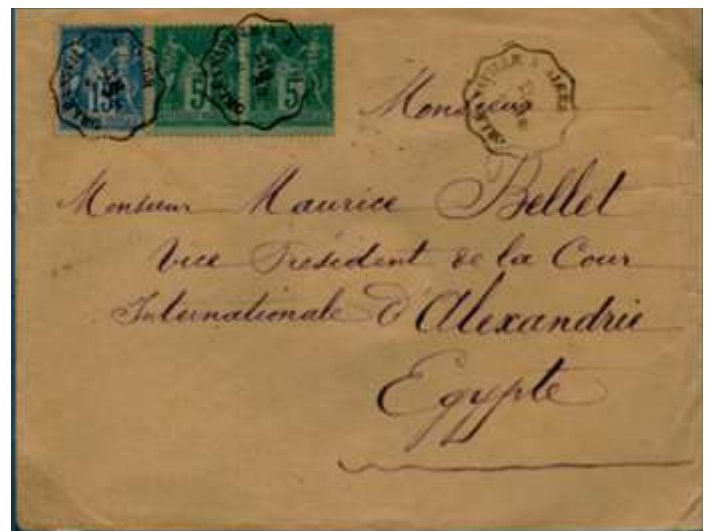 15 5 5
ORLÉANSVILLE À ALGER
Monsieur
Monsieur Maurice Bellet
Vice Président de la Cour
Internationale d'Alexandrie
Egypte